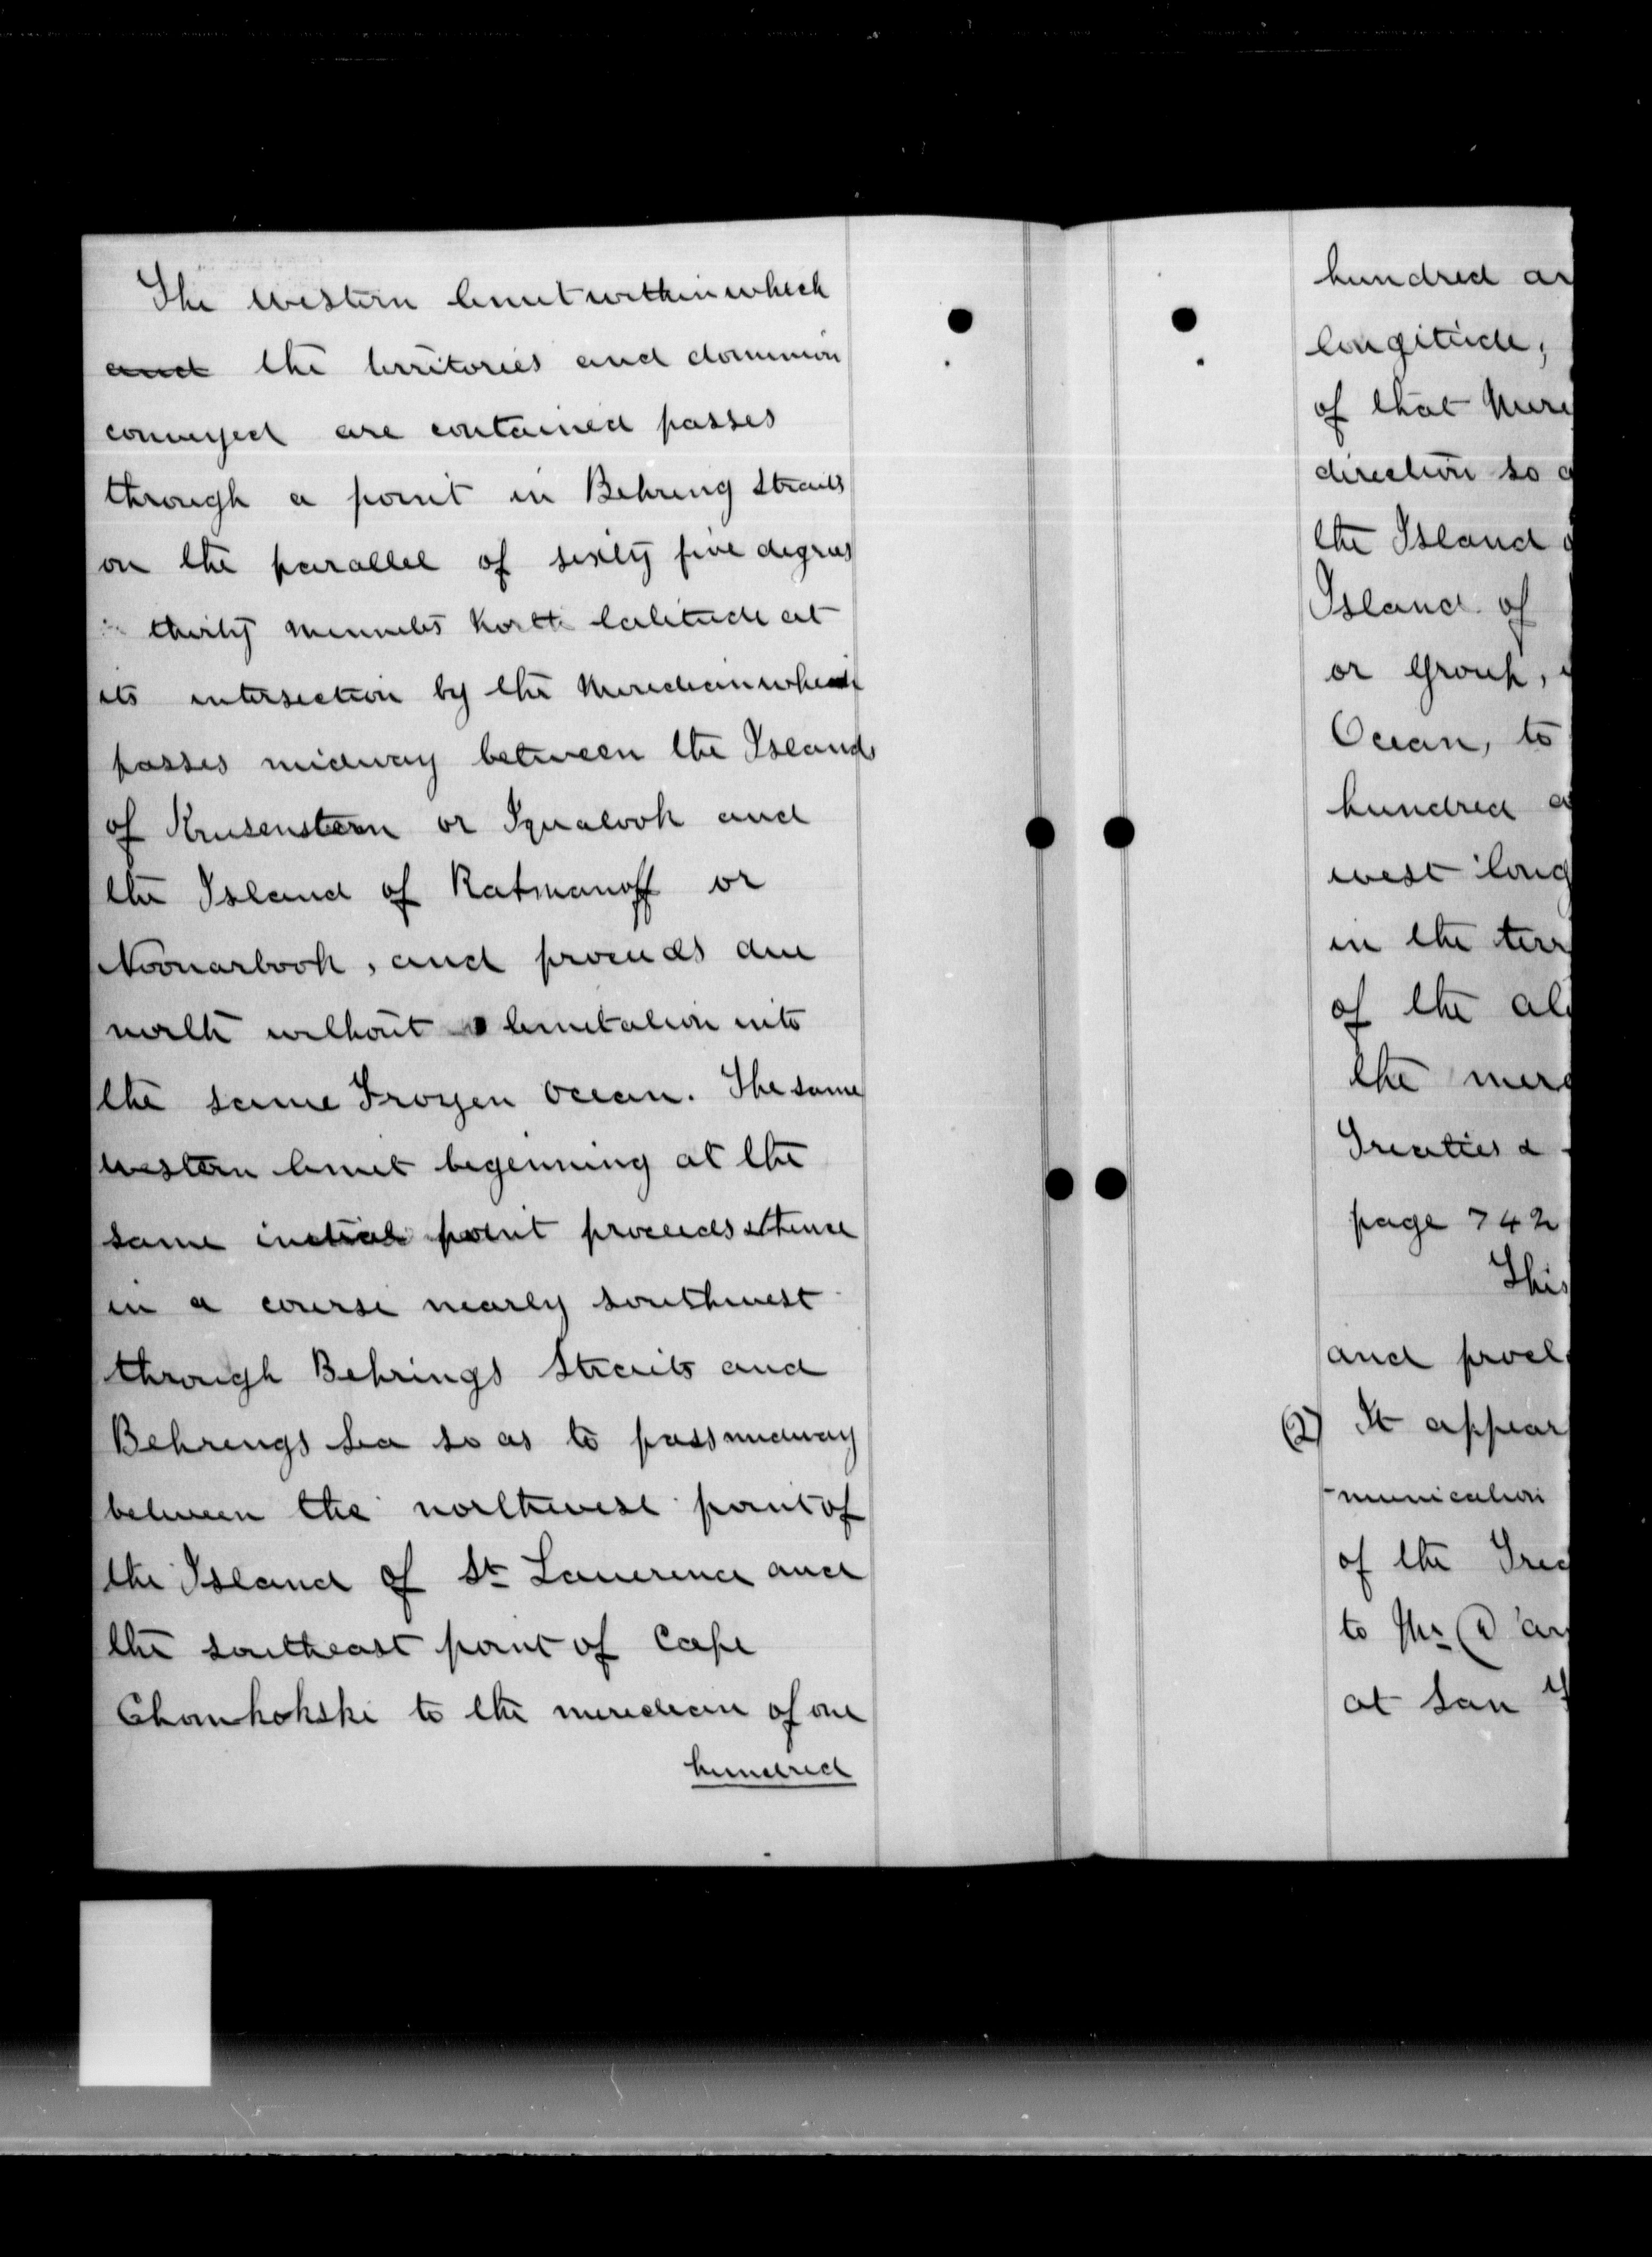 The western limit within which
and the territories and dominion
conveyed are contained passes
through a point in Behring Straits
on the parallel of sixty five degrees
thirty minutes North latitude at
its intersection by the Meridian which
passes midway between the Islands
of Krusenstern or Iqualook and
the Island of Ratmanoff or
Noonarbook, and proceeds due
north without limitation into
the same Frozen Ocean. The same
western limit beginning at the
same initial point proceeds thence
in a course nearly southwest
through Behrings Straits and
Behrings Sea so as to pass midway
between the northwest point of
the Island of St Lawrence and
the southeast point of Cape
Choukokski to the meridian of one
hundred
hundred an
longitude,
of that Meri
direction so a
the Island o
Island of
or Group, i
Ocean, to
hundred a
west long
in the terr
of the al
the meri
Treaties &
page 742
This
and procl
(2) It appear
-munication
of the Trea
to Mr D'ar
at San F